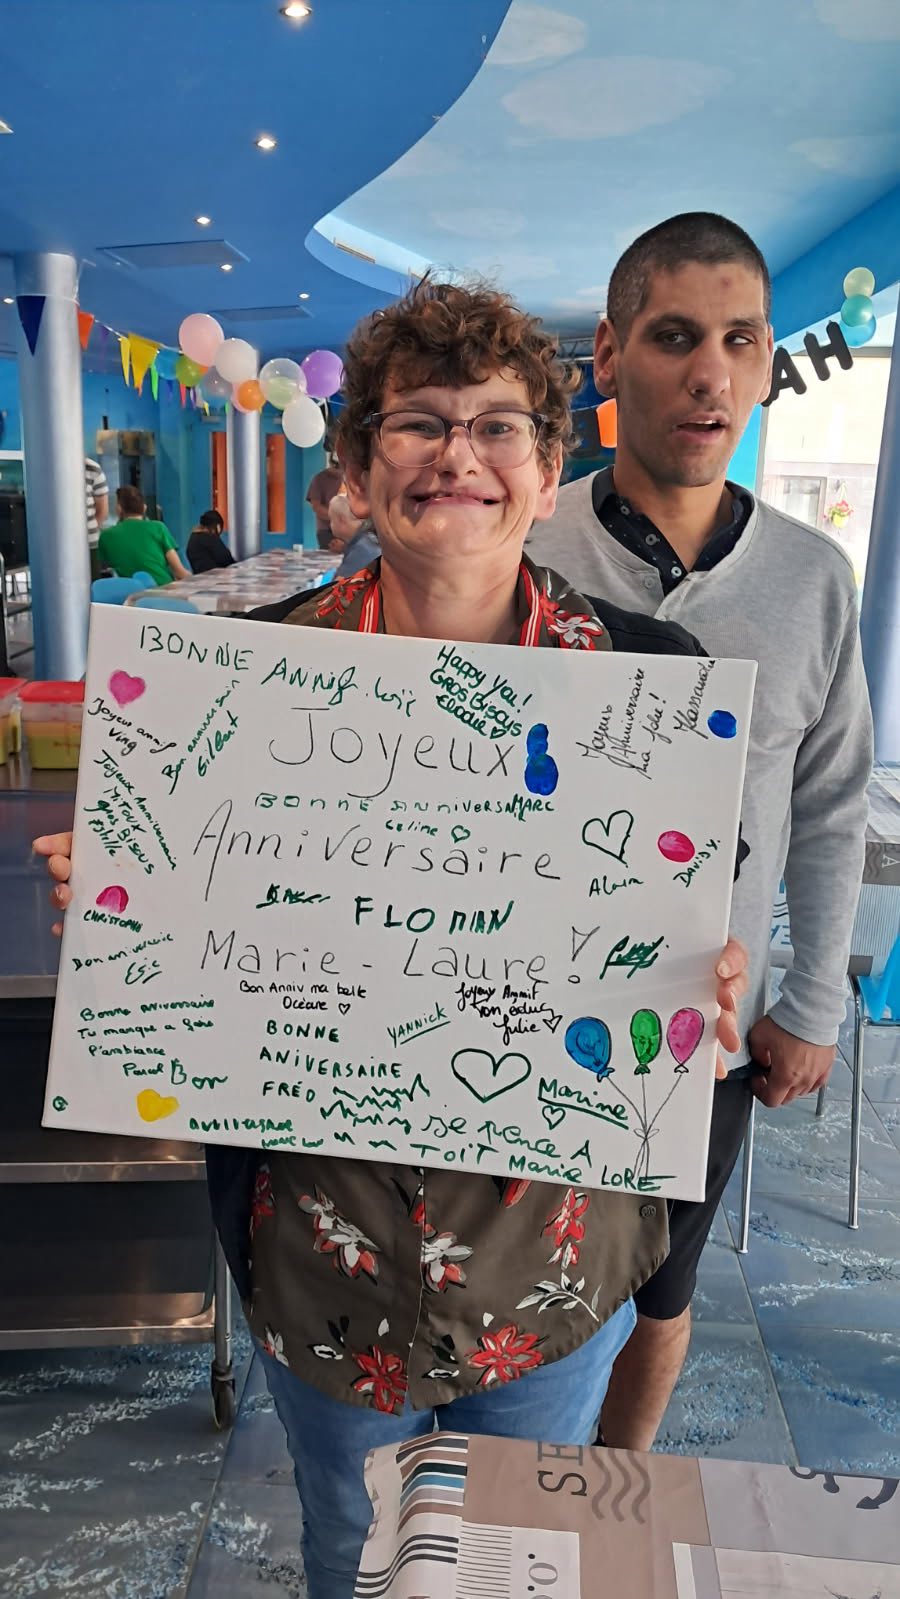 HA
BONNE
Annif. Loïc
Happy You!
GROS BISOUS
Elodie
Joyeux
Anniversaire
Ma jolie!
Kassandra
Joyeux
Joyeux annif
Ving
Bon anniversaire
Gilbert
Joyeux Anniversaire
MiTOUX
gros Bisous
Estelle
BONNE ANNIVERSAIRE MARC
Celine
Anniversaire
Alain
DAVID Y.
CHRISTOPHE
FLORIAN
Bon aniversaire
Eric
Marie - Laure !
Bon Anniv ma belle
Océane
Joyeux Annif
Ton éduc
Julie
Bonne aniversaire
Tu manque a faire
l'ambiance
Pascal
BONNE
ANIVERSAIRE
FRÉD
YANNICK
Marine
Bon
anniversaire
je pence A
Toit Marie LORE
SE